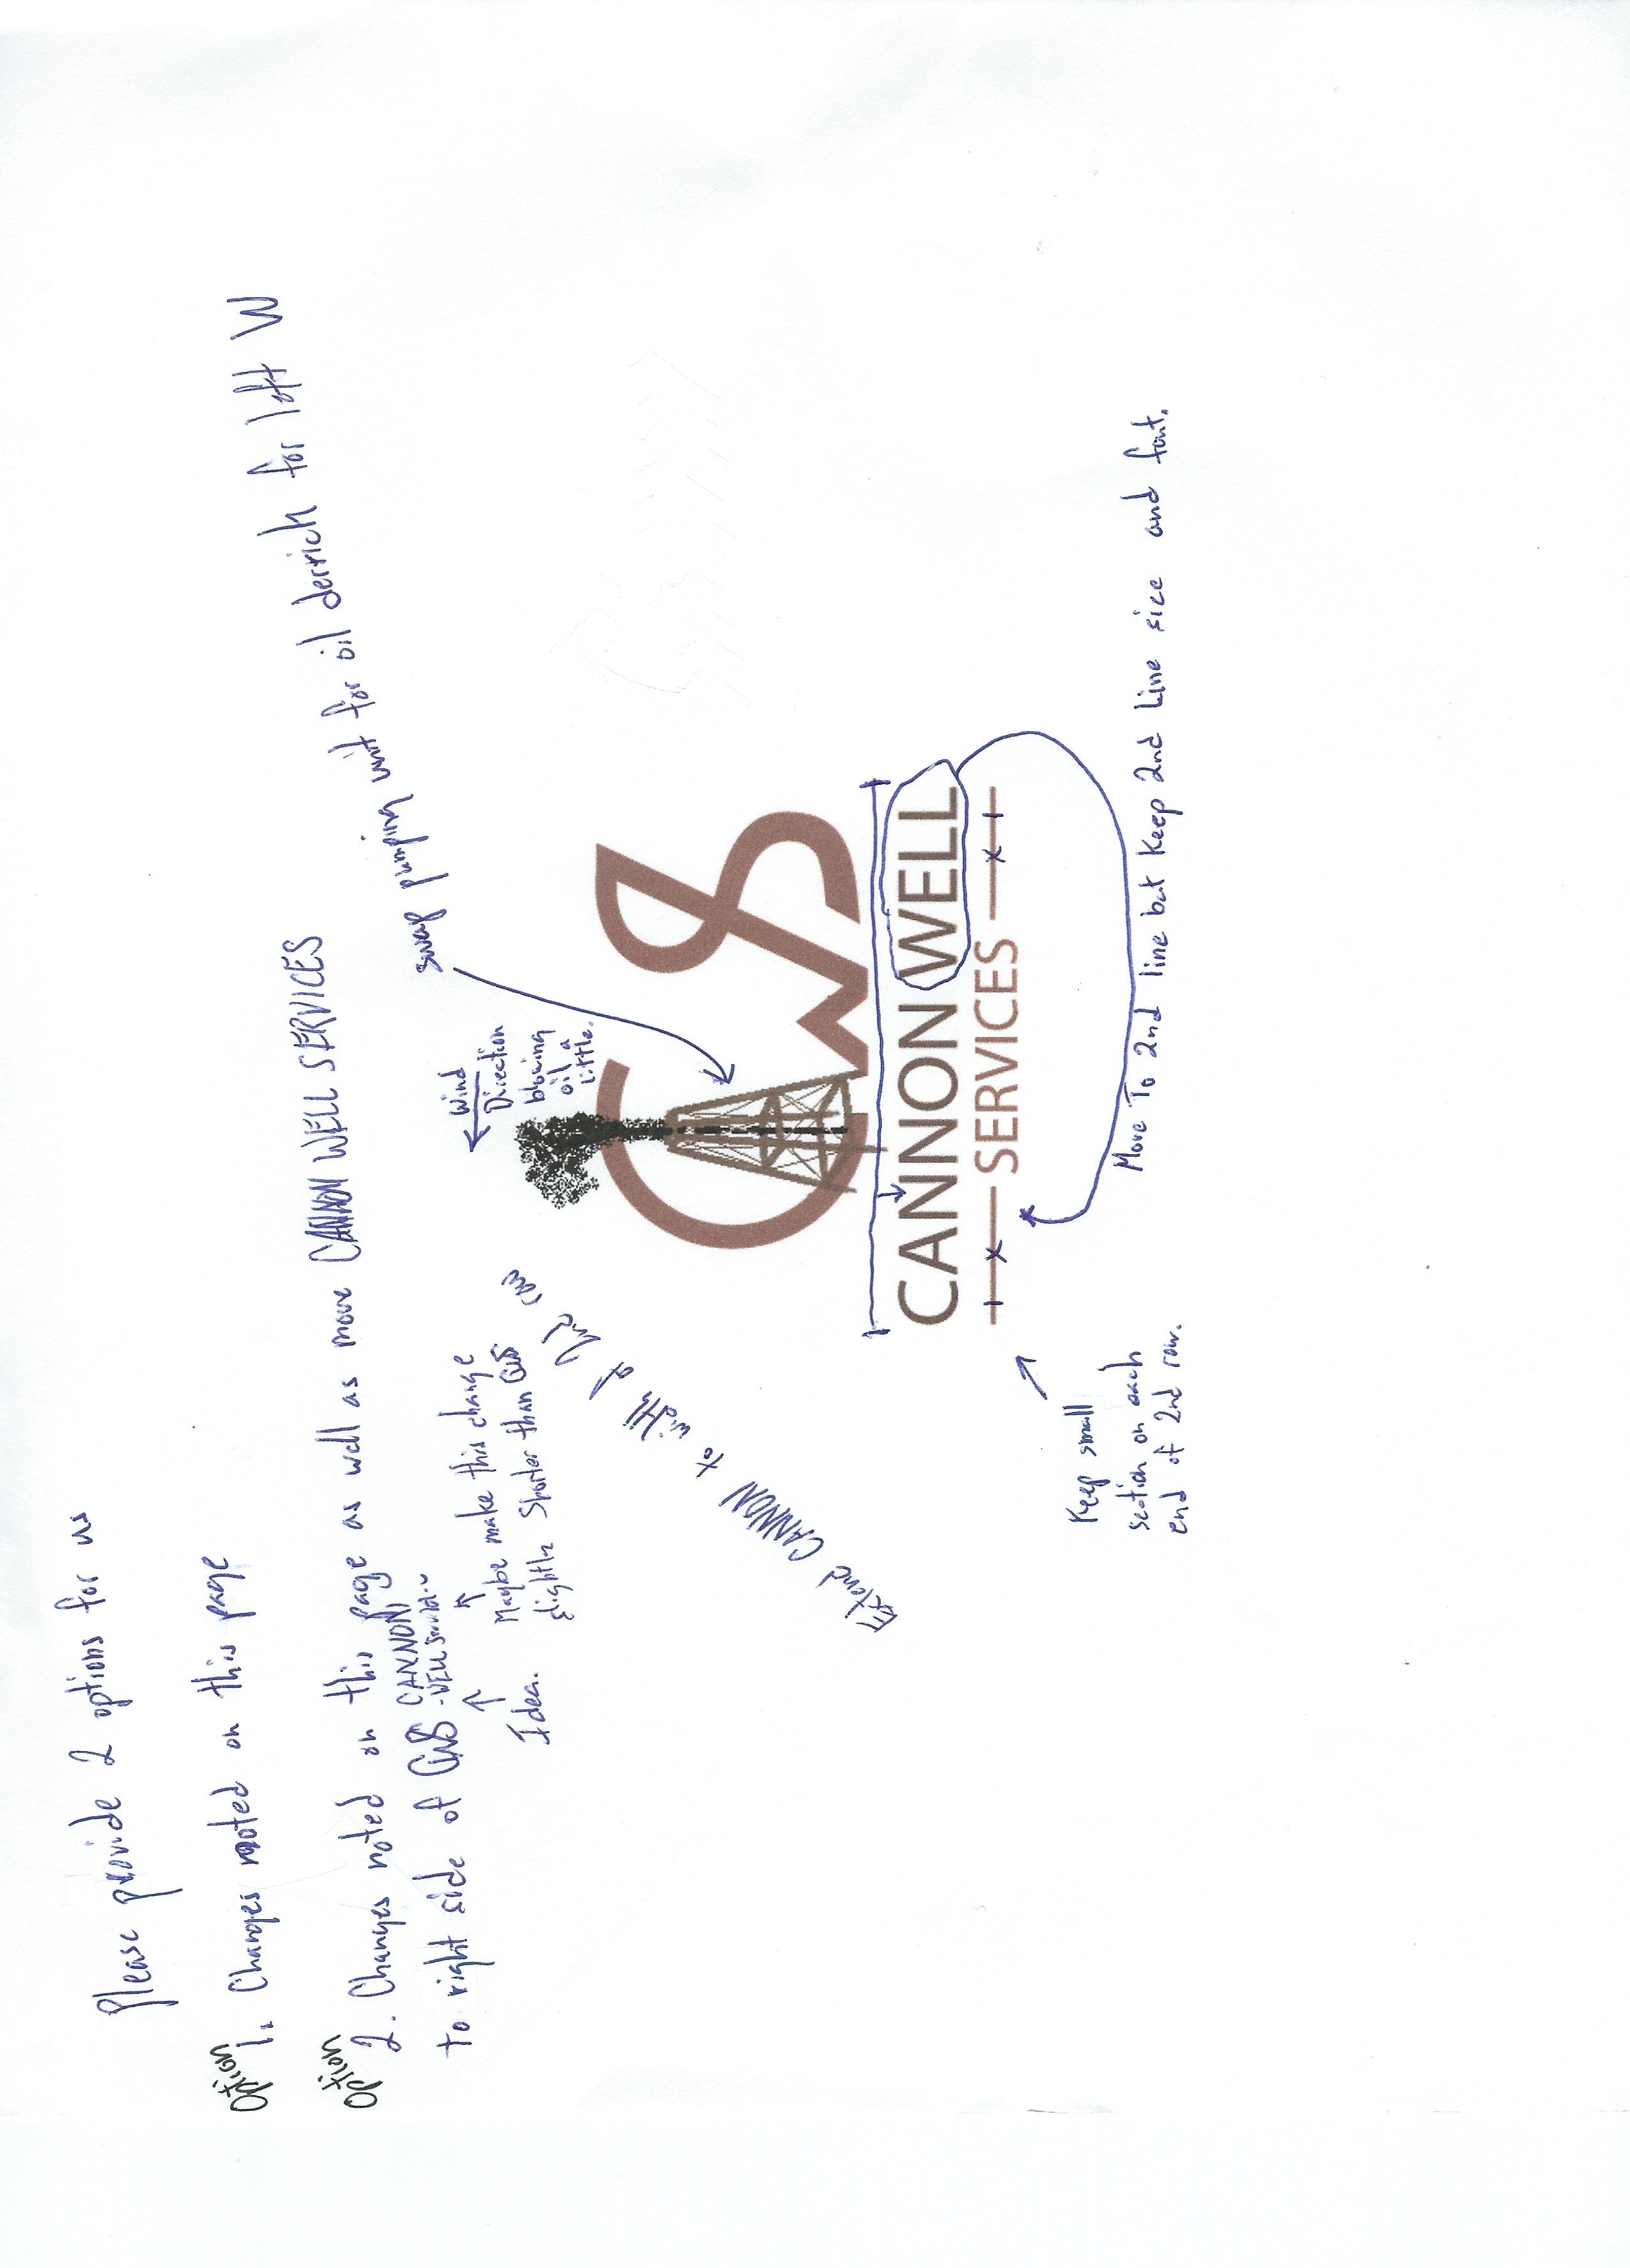 Please provide 2 options for us
Option 1. Changes noted on this page
Option 2. Changes noted on this page as well as move CANNON WELL SERVICES
to right side of CWS CANNON
-WELL Services-
Idea.
Maybe make this change
slightly shorter than CWS
swap pumping unit for oil derrich for left W
Wind
Direction
blowing
oil a
little.
CWS
Extend CANNON to width of
CANNON WELL
SERVICES
x x
Keep small
section on each
end of 2nd row.
Move To 2nd line but keep 2nd Line size and font.